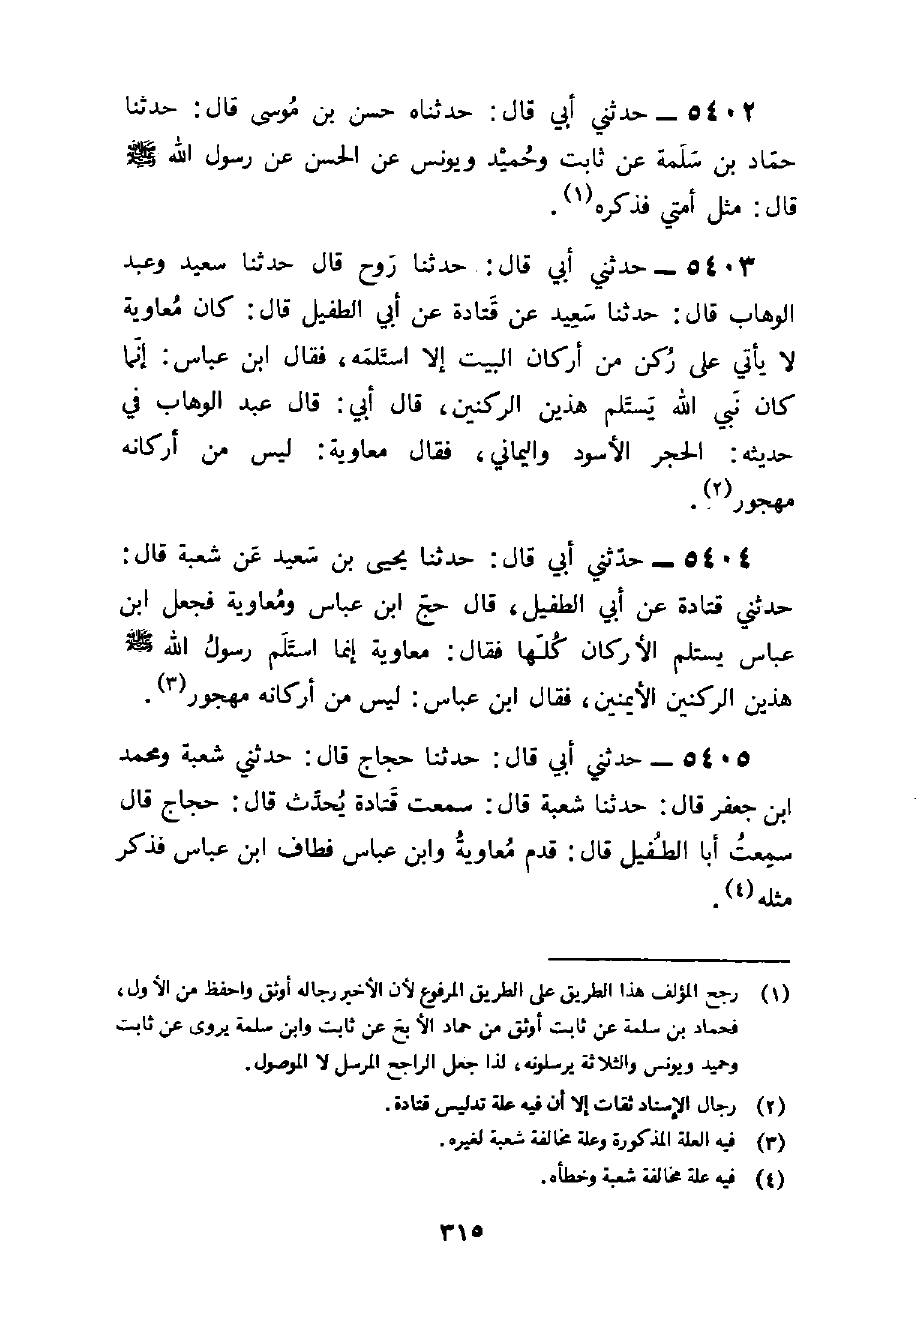 ٥٤٠٢ ــ حدثني أبي قال: حدثناه حسن بن مُوسى قال: حدثنا
حمّاد بن سَلَمة عن ثابت وحُميْد ويونس عن الحسن عن رسول الله ﷺ
قال: مثل أمتي فذكره(١).
٥٤٠٣ ــ حدثني أبي قال: حدثنا رَوح قال حدثنا سعيد وعبد
الوهاب قال: حدثنا سَعِيد عن قَتادة عن أبي الطفيل قال: كان مُعاوية
لا يأتي على رُكن من أركان البيت إلا استَلمَه، فقال ابن عباس: إنَّما
كان نَبي الله يَستَلم هذين الركنين، قال أبي: قال عبد الوهاب في
حديثه: الحجر الأسود واليماني، فقال معاوية: ليس من أركانه
مهجور(٢).
٥٤٠٤ ــ حدّثني أبي قال: حدثنا يحيى بن سَعيد عَن شعبة قال:
حدثني قتادة عن أبي الطفيل، قال حجّ ابن عباس ومُعاوية فجعل ابن
عباس يستلم الأركان كُلّها فقال: معاوية إنما استَلَم رسولُ الله ﷺ
هذين الركنين الأيمنين، فقال ابن عباس: ليس من أركانه مهجور(٣).
٥٤٠٥ ــ حدثني أبي قال: حدثنا حجاج قال: حدثني شعبة ومحمد
ابن جعفر قال: حدثنا شعبة قال: سمعت قَتادة يُحدّث قال: حجاج قال
سمِعتُ أبا الطُفيل قال: قدم مُعاويةُ وابن عباس فطاف ابن عباس فذكر
مثله(٤).
(١) رجح المؤلف هذا الطريق على الطريق المرفوع لأن الأخير رجاله أوثق واحفظ من الأول،
فحماد بن سلمة عن ثابت أوثق من حماد الأبحّ عن ثابت وابن سلمة يروى عن ثابت
وحميد ويونس والثلاثة يرسلونه، لذا جعل الراجح المرسل لا الموصول.
(٢) رجال الإسناد ثقات إلا أن فيه علة تدليس قتادة.
(٣) فيه العلة المذكورة وعلة مخالفة شعبة لغيره.
(٤) فيه علة مخالفة شعبة وخطأه.
٣١٥